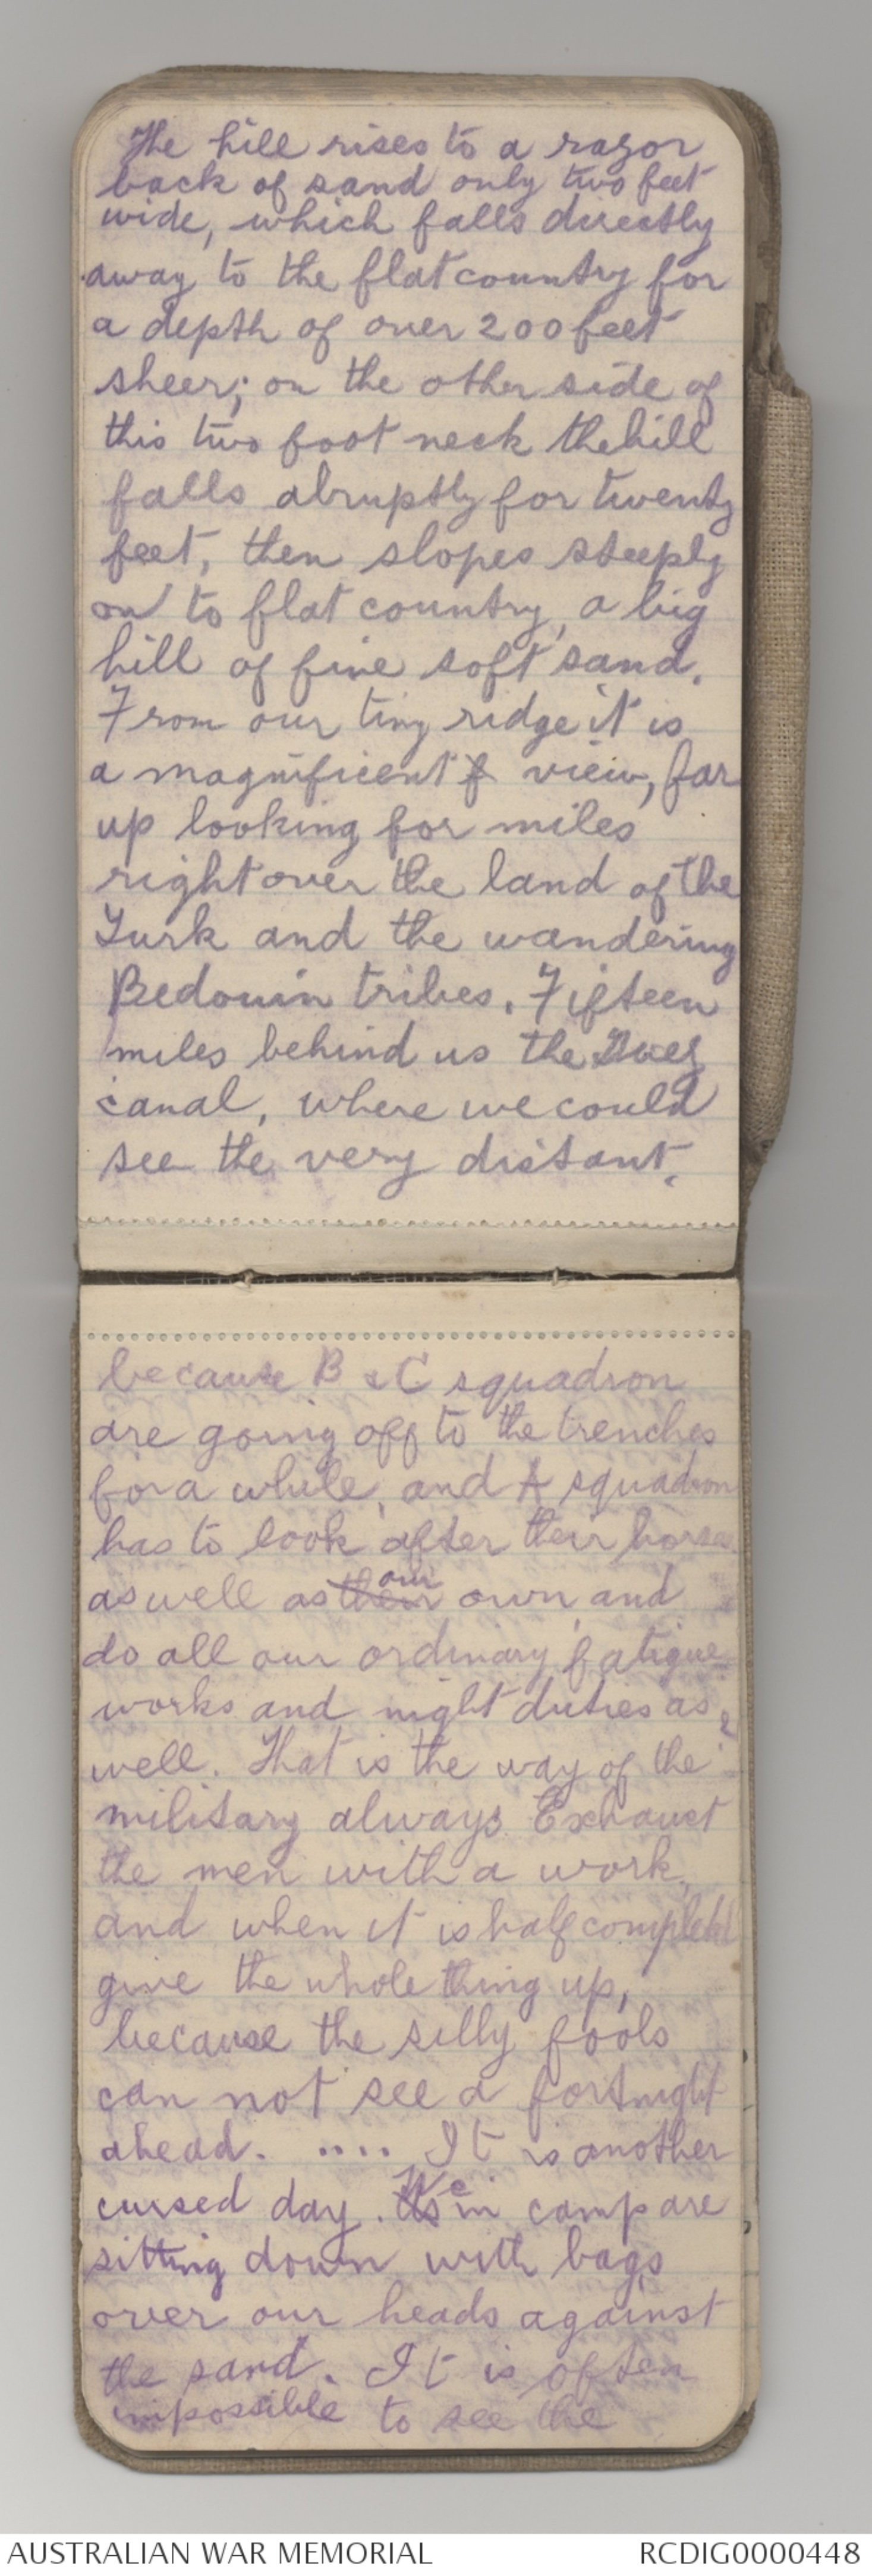 The hill rises to a razor
back of sand only two feet
wide, which falls directly
away to the flat country for
a depth of over 200 feet
sheer; on the other side of
this two foot neck the hill
falls abruptly for twenty
feet, then slopes steeply
on to flat country, a big
hill of fine soft sand.
From our tiny ridge it is
a magnificent f view, far
up looking for miles
right over the land of the
Turk and the wandering
Bedouin tribes. Fifteen
miles behind us the Suez
canal, where we could
see the very distant.
because B & C squadron
are going off to the trenches
for a while, and A squadron
has to look after their horses
as well as their our own and
do all our ordinary fatigue
works and night duties as
well. That is the way of the
military always. Exhaust
the men with a work,
and when it is half completed
give the whole thing up,
because the silly fools
can not see a fortnight
ahead. .... It is another
cursed day. We in camp are
sitting down with bags
over our heads against
the sand. It is often
impossible to see the
AUSTRALIAN WAR MEMORIAL
RCDIG0000448